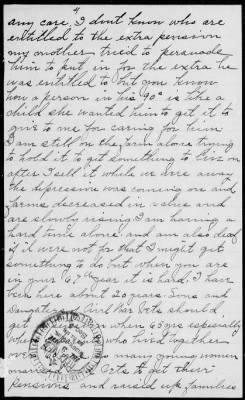 4
any care, I dont know who are
entitled to the extra pension
my mother tried to persuade
him to put in for the extra he
was entitled to but you know
how a person in his 90s is like a
child she wanted him to get it to
give to me for caring for him
I am still on the farm alone trying
to hold it to get something to live on
after I sell it while we were away
the depression was coming on and
farms decreased in value and
are slowly rising. I am having a
hard time alone and am also deaf
if it were not for that I might get
something to do but when you are
in your 67th year it is hard, I have
been here about 20 years. Sons and
Daughters of Civil War Vets should
get when 65 yrs especially
who lived together
many young women
Vets to get their
pensions and raised up families